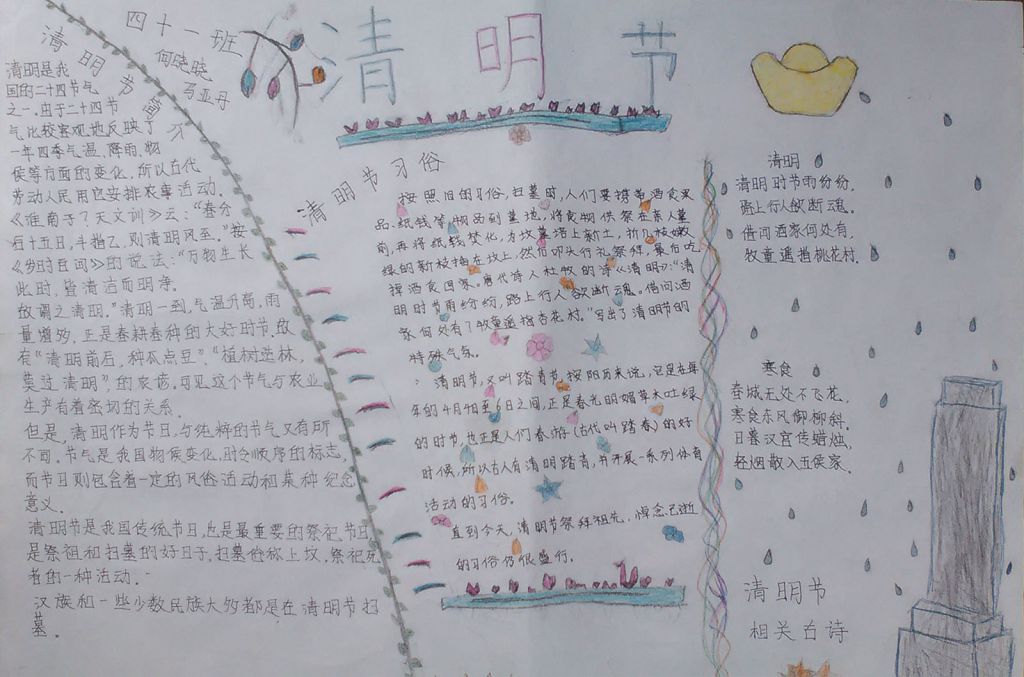 四十一班
何晓晓
马亚丹
清明节
清明节简介
清明是我
国的二十四节气
之一.由于二十四节
气比较客观地反映了
一年四季气温,降雨,物
侯等方面的变化,所以古代
劳动人民用它安排农事活动.
《淮南子?天文训》云:“春分
后十五日,斗指乙,则清明风至.”按
《岁时百问》的说法:“万物生长
此时,皆清洁而明净.
故谓之清明.”清明一到,气温升高,雨
量增多,正是春耕春种的大好时节.故
有“清明前后,种瓜点豆”.“植树造林,
莫过清明”的农谚.可见这个节气与农业
生产有着密切的关系.
但是,清明作为节日,与纯粹的节气又有所
不同.节气是我国物候变化,时令顺序的标志,
而节日则包含着一定的风俗活动和某种纪念
意义.
清明节是我国传统节日,也是最重要的祭祀节日
是祭祖和扫墓的好日子.扫墓俗称上坟,祭祀死
者的一种活动.
汉族和一些少数民族大多都是在清明节扫
墓.
清明节习俗
按照旧的习俗,扫墓时,人们要携带酒食果
品.纸钱等物品到墓地,将食物供祭在亲人墓
前,再将纸钱焚化,为坟墓培上新土,折几枝嫩
绿的新枝插在坟上,然后叩头行礼祭拜,最后吃
掉酒食回家.唐代诗人杜牧的诗《清明》:“清
明时节雨纷纷,路上行人欲断魂.借问酒
家何处有?牧童遥指杏花村.”写出了清明节的
特殊气氛.
清明节,又叫踏青节,按阳历来说,它是在每
年的4月4日至6日之间,正是春光明媚草木吐绿
的时节,也正是人们春游(古代叫踏春)的好
时候,所以古人有清明踏青,并开展一系列体育
活动的习俗.
直到今天,清明节祭拜祖先,悼念已逝
的习俗仍很盛行.
清明
清明时节雨纷纷,
路上行人欲断魂.
借问酒家何处有,
牧童遥指桃花村.
寒食
春城无处不飞花,
寒食东风御柳斜.
日暮汉宫传蜡烛,
轻烟散入五侯家.
清明节
相关古诗